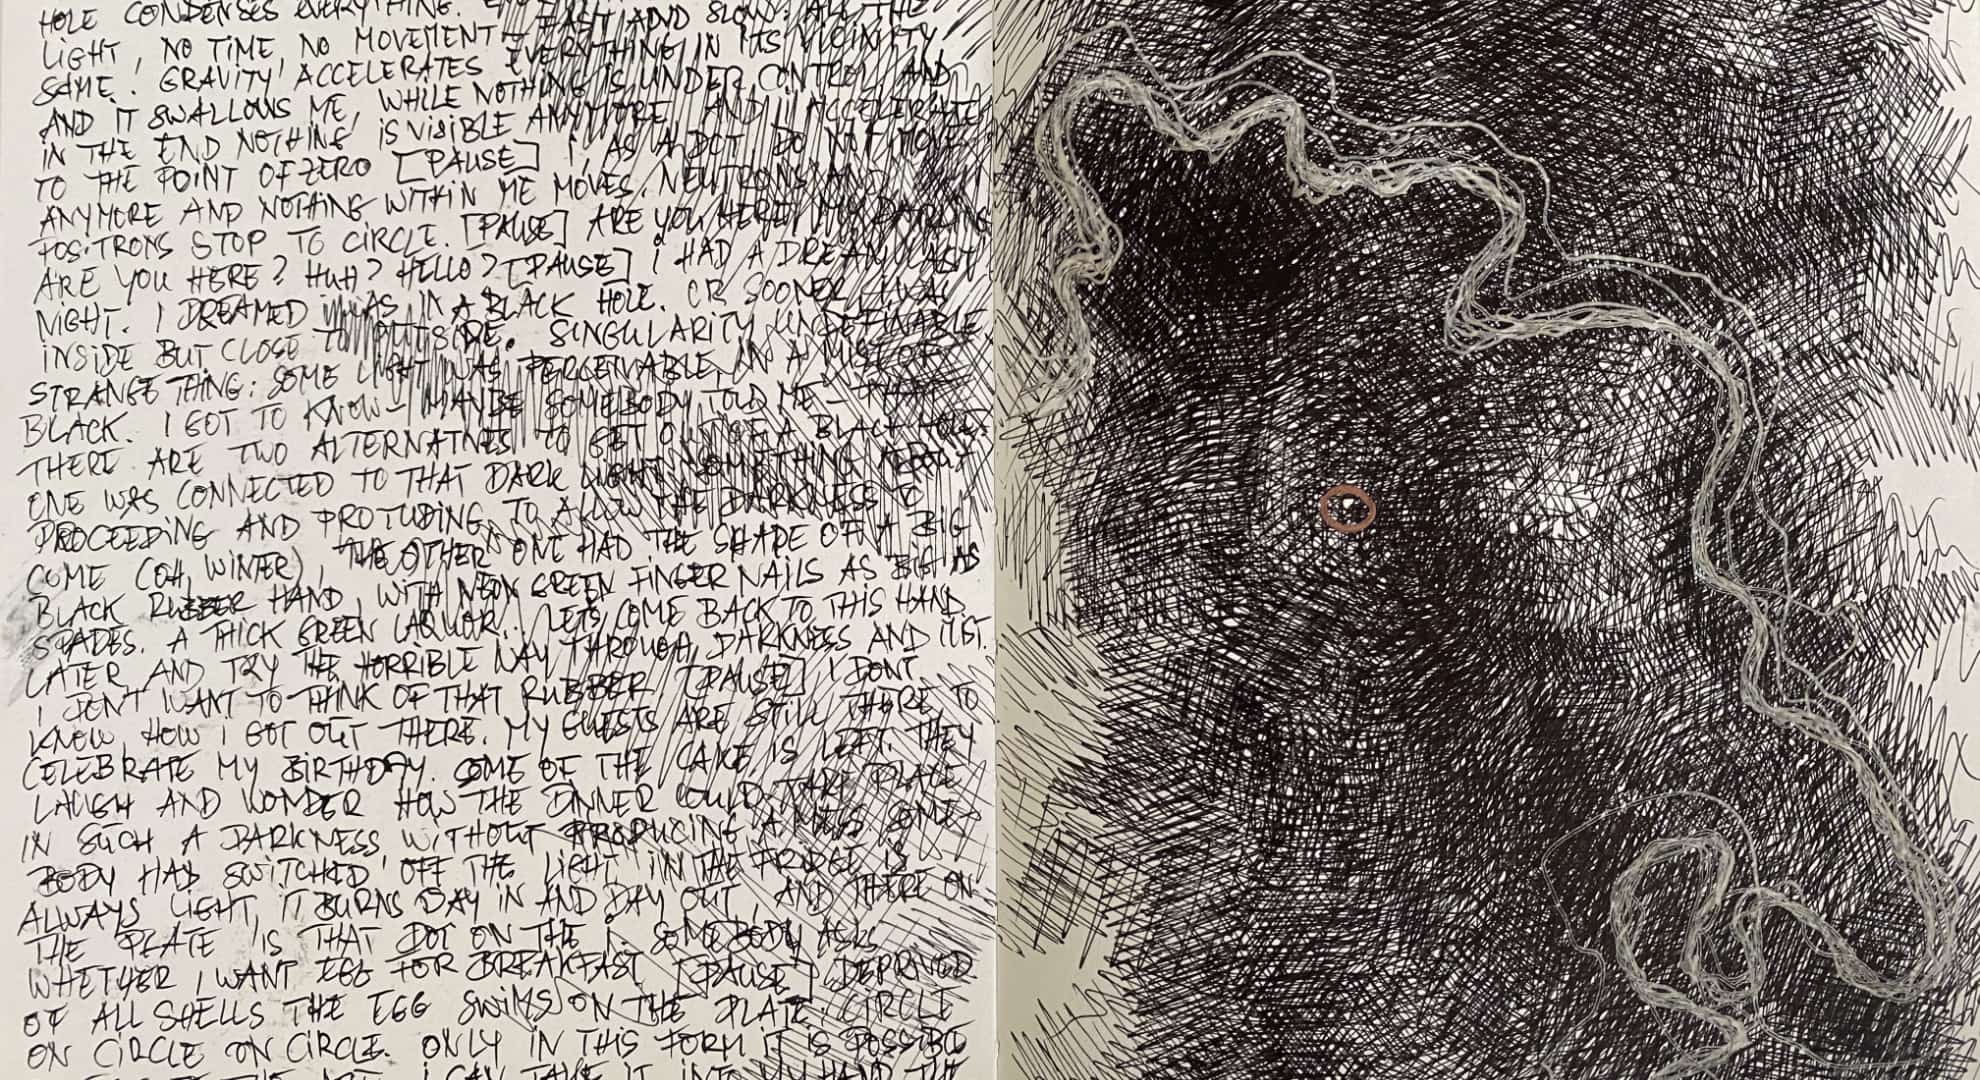 HOLE CONDENSES EVERYTHING. FAST AND SLOW: ALL THE
LIGHT, NO TIME, NO MOVEMENT – EVERYTHING IN ITS VICINITY
SAME. GRAVITY ACCELERATES
AND IT SWALLOWS ME, WHILE NOTHING IS UNDER CONTROL AND
IN THE END NOTHING IS VISIBLE ANYMORE AND I ACCELERATE
TO THE POINT OF ZERO [PAUSE] I AS A DOT DO NOT MOVE
ANYMORE AND NOTHING WITHIN ME MOVES. NEUTRONS AND
POSITRONS STOP TO CIRCLE. [PAUSE] ARE YOU HERE, MY DARLING
ARE YOU HERE? HUH? HELLO? [PAUSE] I HAD A DREAM LAST
NIGHT. I DREAMED I WAS IN A BLACK HOLE. OR SOONER I WAS
INSIDE BUT CLOSE TO OUTSIDE. SINGULARITY UNDEFINABLE
STRANGE THING: SOME LIGHT WAS PERCEIVABLE, IN A MIST OF
BLACK. I GOT TO KNOW – MAYBE SOMEBODY TOLD ME – THAT
THERE ARE TWO ALTERNATIVES TO GET OUT OF A BLACK HOLE:
ONE WAS CONNECTED TO THAT DARK LIGHT SOMETHING ABOUT
PROCEEDING AND PROTUDING, TO ALLOW THE DARKNESS TO
COME (OH, WINTER), THE OTHER ONE HAD THE SHAPE OF A BIG
BLACK RUBBER HAND, WITH NEON GREEN FINGER NAILS AS BIG AS
SPADES. A THICK GREEN LAQUOR. LETS COME BACK TO THIS HAND
LATER AND TRY THE HORRIBLE WAY THROUGH DARKNESS AND MIST.
I DON'T WANT TO THINK OF THAT RUBBER. [PAUSE] I DONT
KNOW HOW I GOT OUT THERE. MY GUESTS ARE STILL THERE TO
CELEBRATE MY BIRTHDAY. SOME OF THE CAKE IS LEFT. THEY
LAUGH AND WONDER HOW THE DINNER COULD TAKE PLACE
IN SUCH A DARKNESS WITHOUT PRODUCING A MESS. SOME
BODY HAS SWITCHED OFF THE LIGHT, IN THE FRIDGE IS
ALWAYS LIGHT, IT BURNS DAY IN AND DAY OUT, AND THERE ON
THE PLATE IS THAT DOT ON THE I. SOMEBODY ASKS
WHETHER I WANT EGG FOR BREAKFAST [PAUSE] DEPRIVED
OF ALL SHELLS THE EGG SWIMS ON THE PLATE: CIRCLE
ON CIRCLE ON CIRCLE. ONLY IN THIS FORM IT IS POSSIBLE
I CAN TAKE IT INTO MY HAND THE